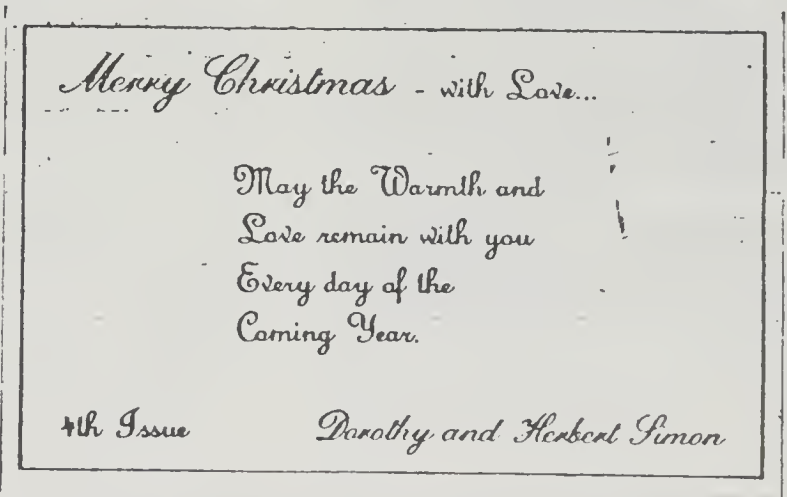 Merry Christmas - with Love...
May the Warmth and
Love remain with you
Every day of the
Coming Year.
4th Issue
Dorothy and Herbert Simon